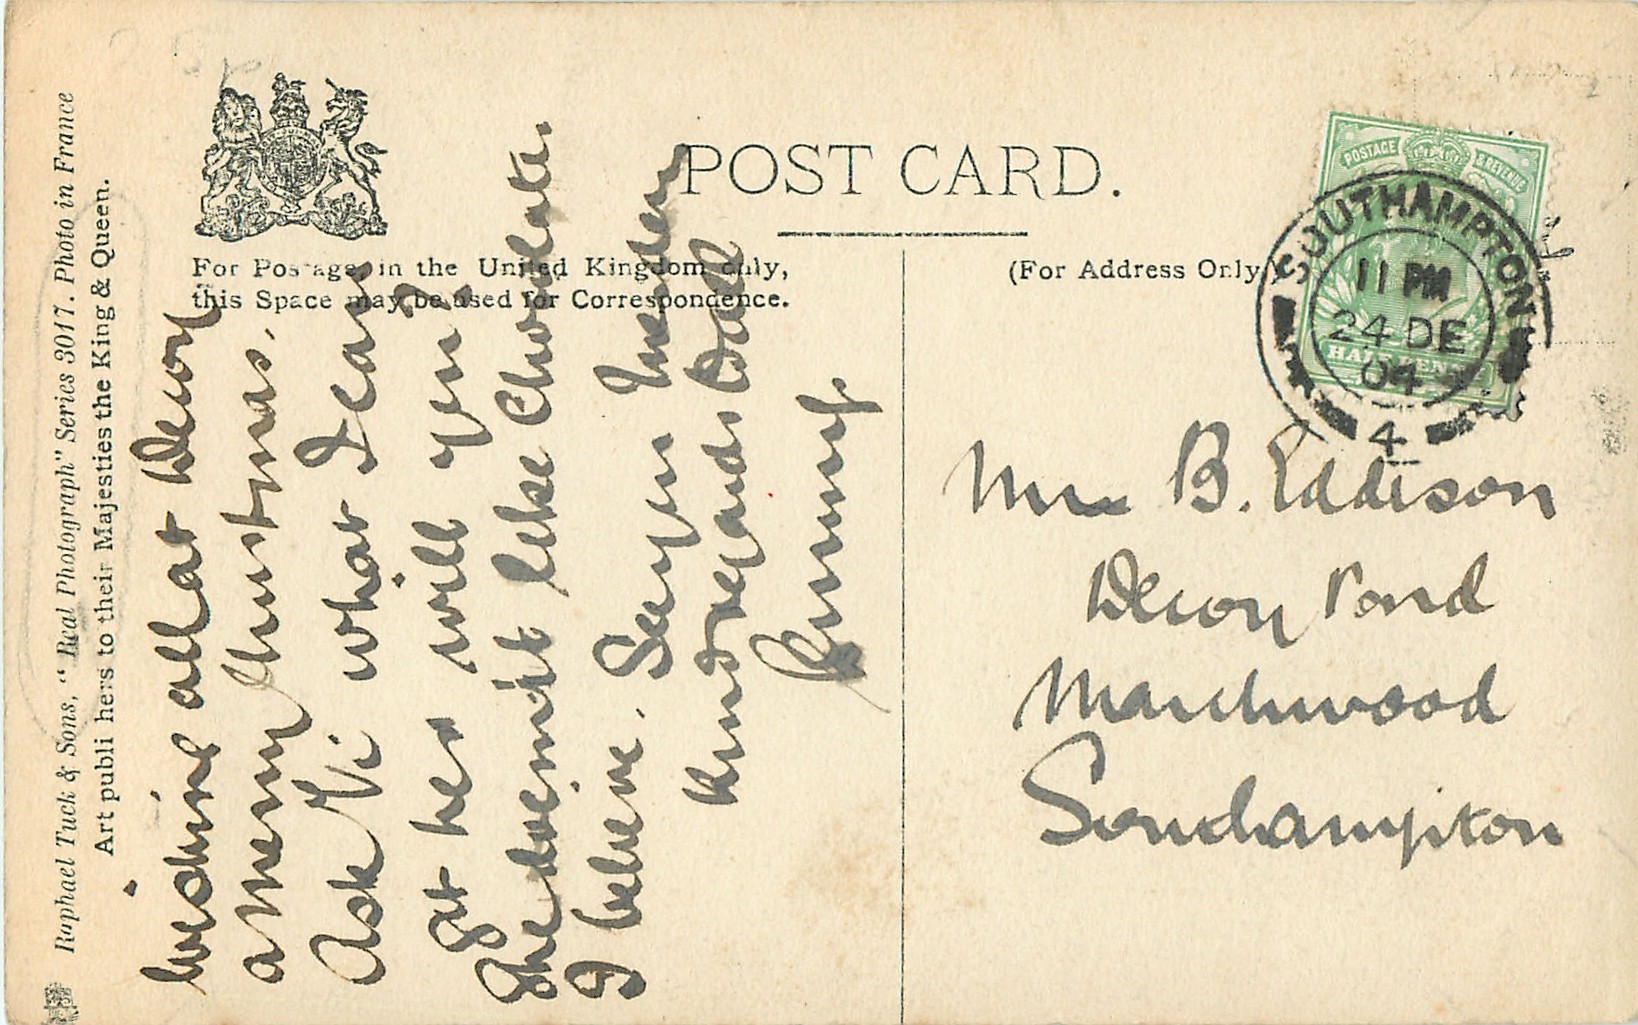 Raphael Tuck & Sons, "Real Photograph" Series 3017. Photo in France
Art publi hers to their Majesties the King & Queen.
POST CARD.
For Postage in the United Kingdom only,
this Space may be used for Correspondence.
(For Address Only
POSTAGE & REVENUE
HALFPENNY
SOUTHAMPTON
11 PM
24 DE
04
4
wishing all at Decoy
a Merry Christmas.
Ask Vi what I can
get her will you?
She doesn't like Chocolate
I believe. See you Tuesday
Kind regards to all
Mrs B. Eddison
Decoy Pond
Marchwood
Southampton